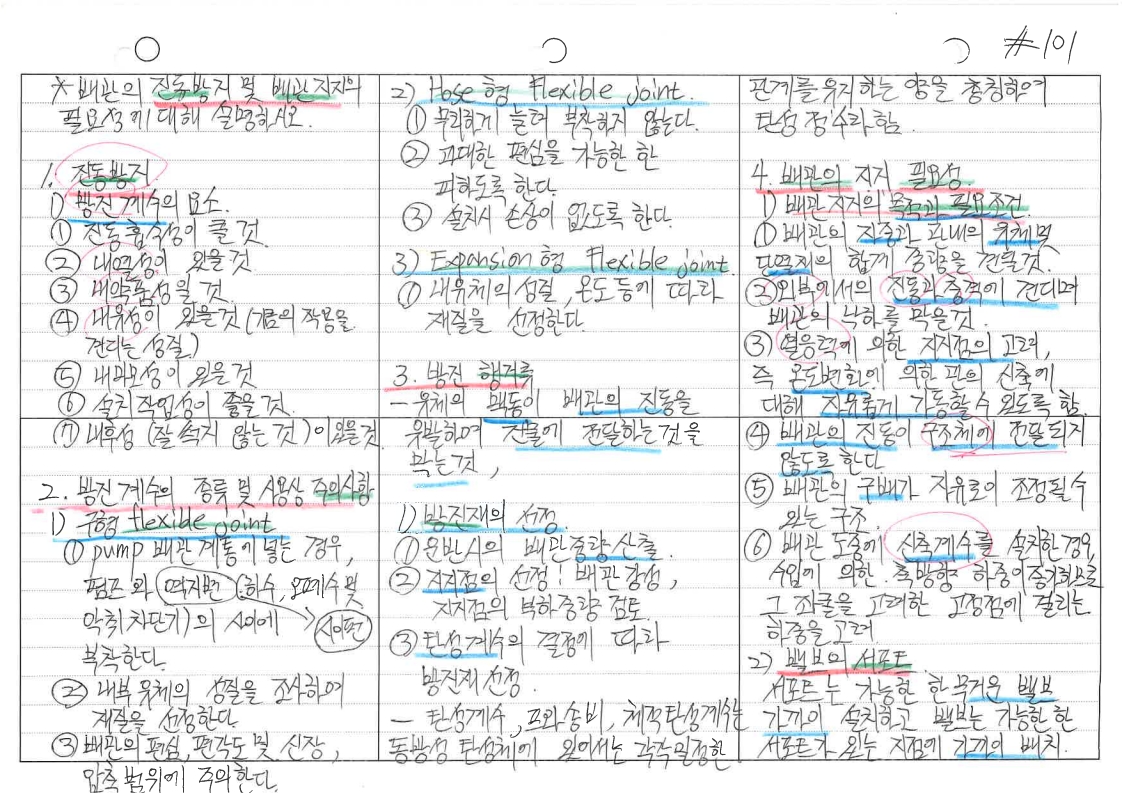 #101
* 배관의 진동방지 및 배관지지의
필요성에 대해 설명하시오.
1. 진동방지
1) 방진계수의 요소.
① 진동흡수성이 클 것.
② 내열성이 있을 것
③ 내약품성일 것.
④ 내유성이 있을 것 (기름의 작용을
견디는 성질)
⑤ 내마모성이 있을 것
⑥ 설치작업성이 좋을 것.
⑦ 내후성 (잘 썩지 않는 것)이 있을것
2. 방진계수의 종류 및 사용상 주의사항
1) 구형 flexible joint
① pump 배관 계통에 넣는 경우,
펌프와 역지변 (하수, 오폐수 및
악취차단기)의 사이에 → 사이펀
부착한다.
② 내부 유체의 성질을 조사하여
재질을 선정한다
③ 배관의 편심, 편각도 및 신장,
압축 범위에 주의한다.
2) Hose 형 flexible joint.
① 무리하게 늘려 부착하지 않는다.
② 과대한 편심을 가능한 한
피하도록 한다.
③ 설치시 손상이 없도록 한다.
3) Expansion 형 flexible joint.
① 내유체의 성질, 온도 등에 따라
재질을 선정한다.
3. 방진 행거류
- 유체의 맥동이 배관의 진동을
유발하여 건물에 전달하는 것을
막는 것,
1) 방진재의 선정.
① 운반시의 배관중량 산출.
② 지지점의 선정! 배관 강성,
지지점의 부하중량 검토.
③ 탄성계수의 결정에 따라
방진재 선정.
- 탄성계수, 포와송비, 체적탄성계수는
등방성 탄성체에 있어서는 각각 일정한
관계를 유지하는 양을 총칭하여
탄성 정수라 함.
4. 배관의 지지 필요성.
1) 배관지지의 목적과 필요조건.
① 배관의 자중과 관내의 유체 및
단열재의 합계 중량을 견딜것.
② 외부에서의 진동과 충격에 견디며
배관의 낙하를 막을 것.
③ 열응력에 의한 지지점의 고려,
즉 온도변화에 의한 관의 신축에
대해 자유롭게 가동할 수 있도록 함.
④ 배관의 진동이 구조체에 전달되지
않도록 한다
⑤ 배관의 구배가 자유로이 조정될 수
있는 구조.
⑥ 배관 도중에 신축계수를 설치한 경우,
수압에 의한 축방향 하중이 증가하므로
그 좌굴을 고려한 고정점에 걸리는
하중을 고려
2) 밸브의 서포트.
서포트는 가능한 한 무거운 밸브
가까이 설치하고 밸브는 가능한 한
서포트가 있는 지점에 가까이 배치.